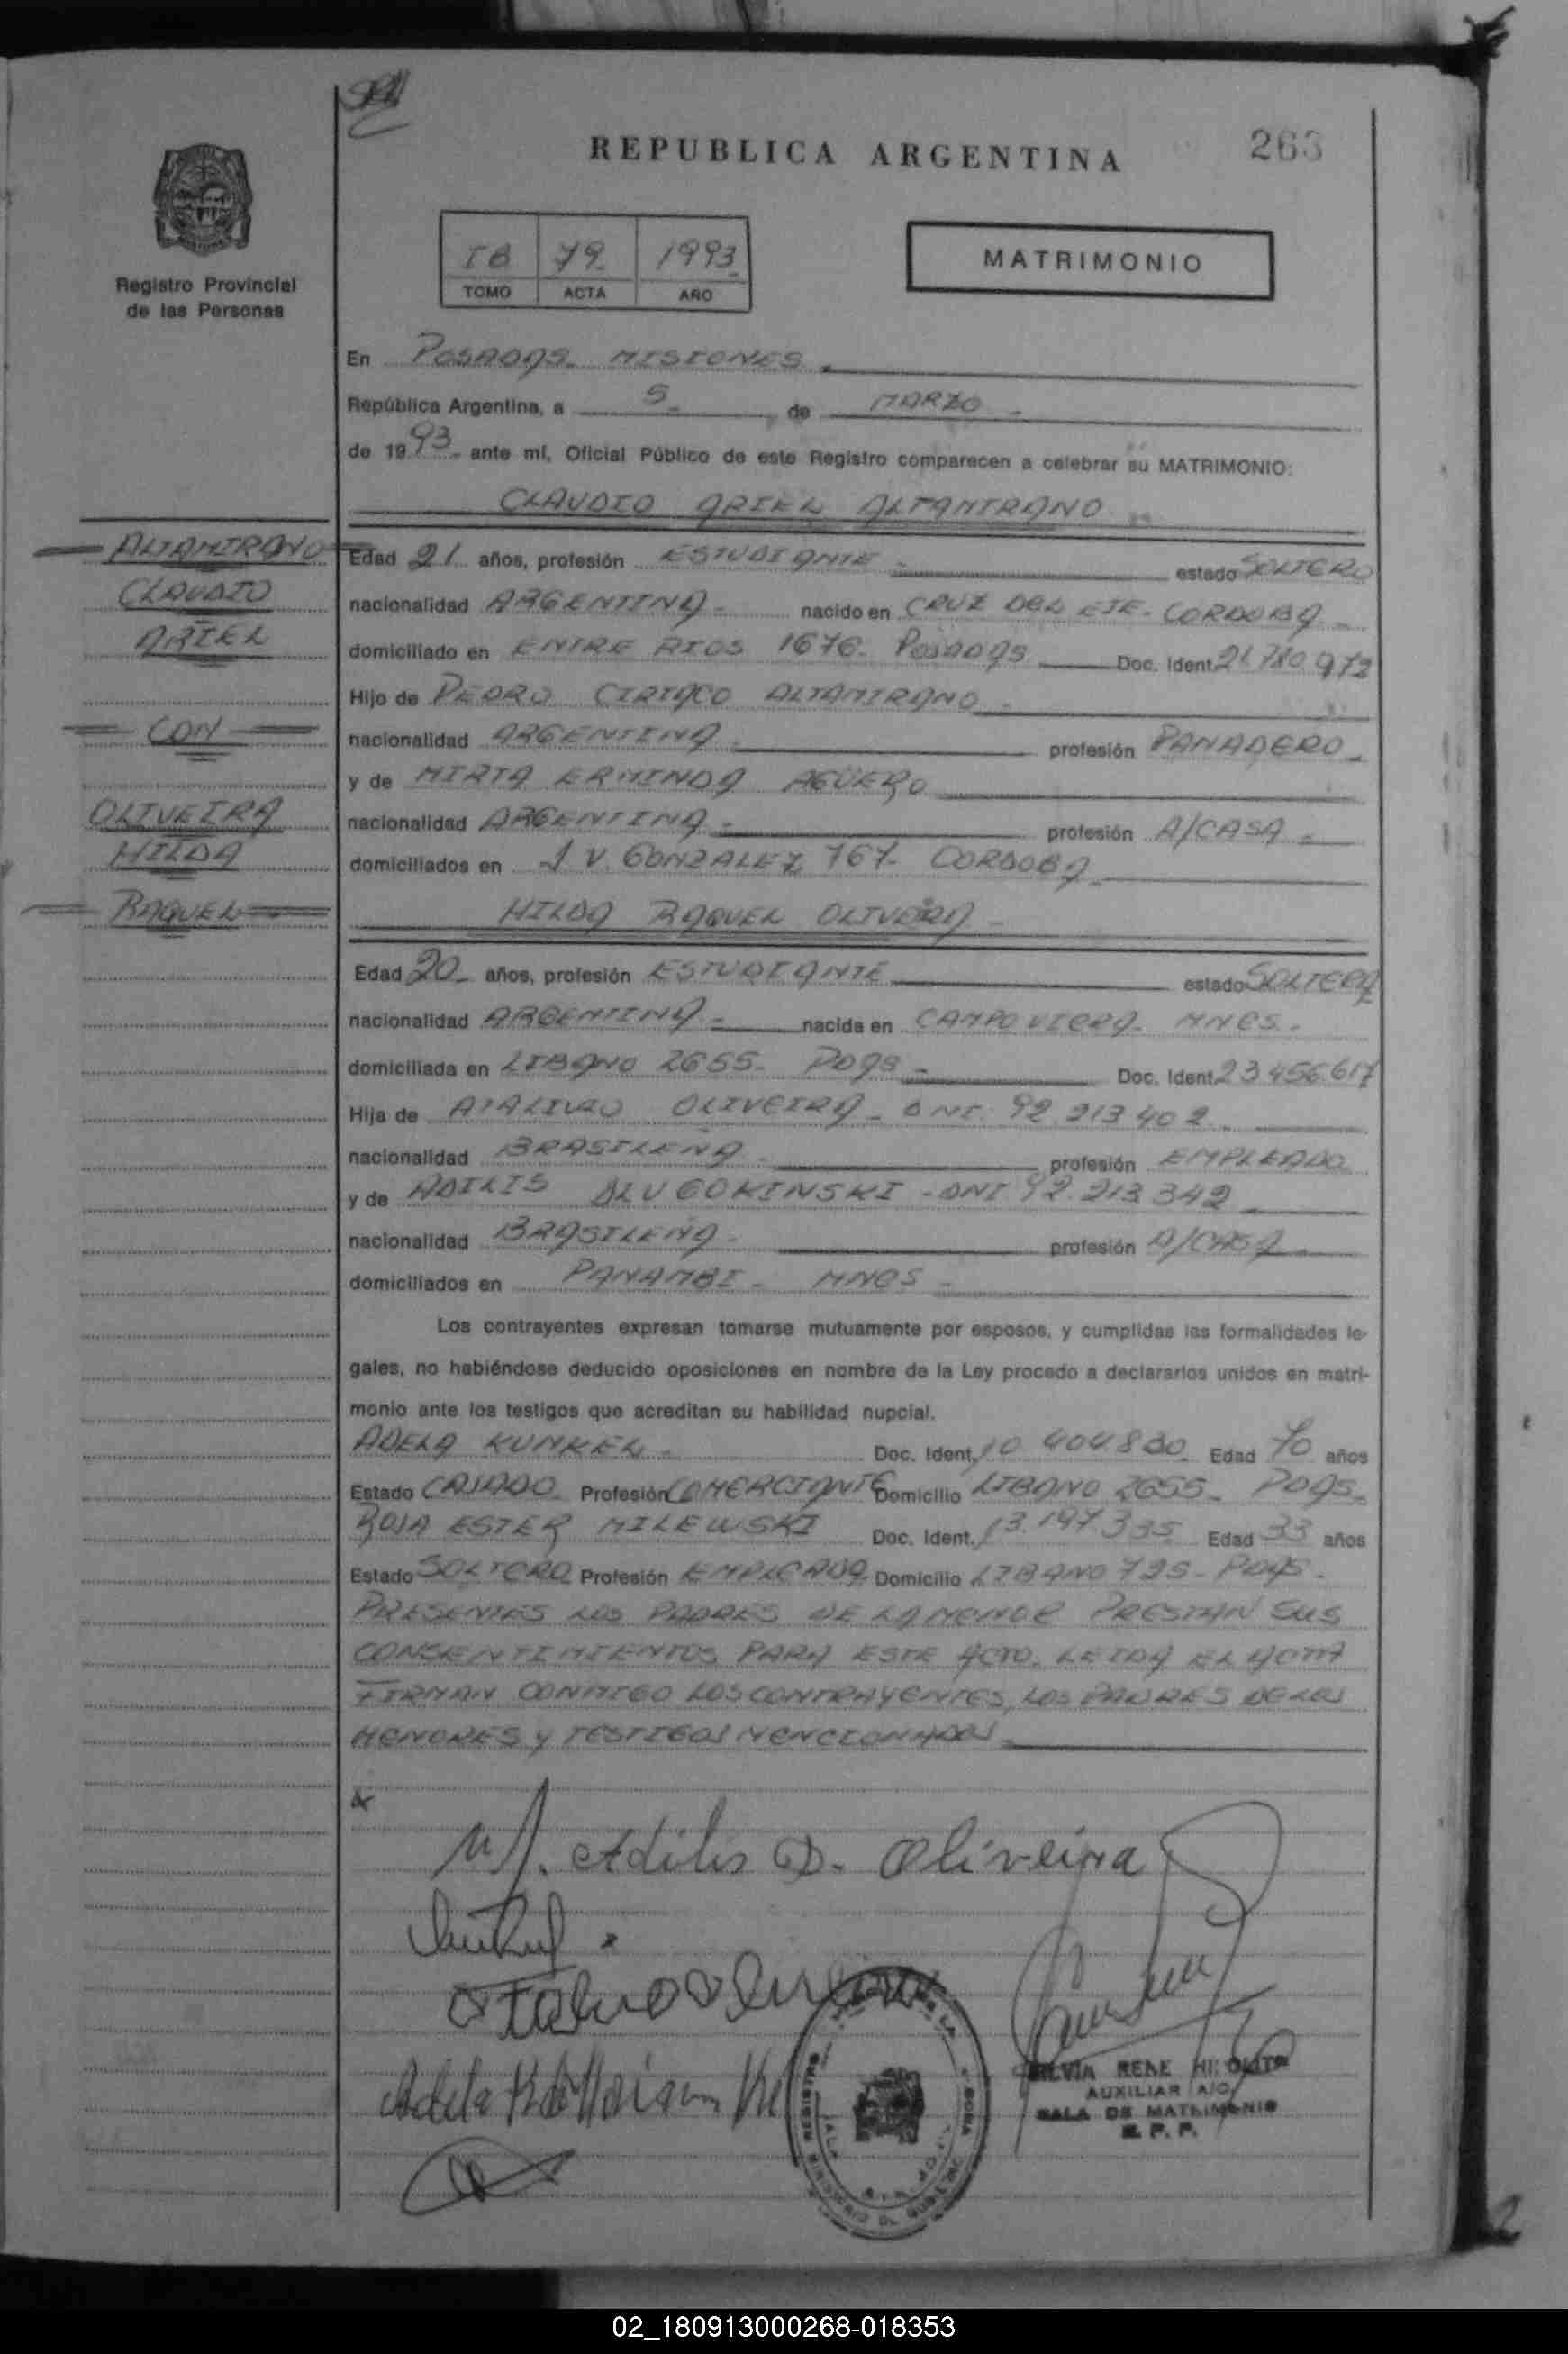 REPUBLICA ARGENTINA
263
Registro Provincial
de las Personas
IB 79 1993
TOMO ACTA AÑO
MATRIMONIO
En POSADAS - MISIONES
República Argentina, a 5 de MARZO
de 1993 ante mí, Oficial Público de este Registro comparecen a celebrar su MATRIMONIO:
CLAUDIO ARIEL ALTAMIRANO
ALTAMIRANO
CLAUDIO
ARIEL
CON
OLIVEIRA
HILDA
RAQUEL
Edad 21 años, profesión ESTUDIANTE estado SOLTERO
nacionalidad ARGENTINA nacido en CRUZ DEL EJE - CORDOBA
domiciliado en ENTRE RIOS 1676 - POSADAS Doc. Ident. 21.780.972
Hijo de PEDRO CIRIACO ALTAMIRANO
nacionalidad ARGENTINA profesión PANADERO
y de MIRTA ERMINDA AGÜERO
nacionalidad ARGENTINA profesión A/CASA
domiciliados en J.V. GONZALEZ 767 - CORDOBA
HILDA RAQUEL OLIVEIRA
Edad 20 años, profesión ESTUDIANTE estado SOLTERA
nacionalidad ARGENTINA nacida en CAMPO VIERA - MNES.
domiciliada en LIBANO 2655 - PDAS Doc. Ident. 23.456.617
Hija de OLIVEIRA - DNI 92.213.402
nacionalidad BRASILEÑA profesión EMPLEADO
y de ADILIS DLUGOKINSKI - DNI 92.213.342
nacionalidad BRASILEÑA profesión A/CASA
domiciliados en PANAMBI - MNES
Los contrayentes expresan tomarse mutuamente por esposos, y cumplidas las formalidades le-
gales, no habiéndose deducido oposiciones en nombre de la Ley procedo a declararlos unidos en matri-
monio ante los testigos que acreditan su habilidad nupcial.
ADELA KUNKEL Doc. Ident. 10.404.830 Edad 70 años
Estado CASADO Profesión COMERCIANTE Domicilio LIBANO 2655 - PDAS.
ROSA ESTER MILEWSKI Doc. Ident. 13.197.335 Edad 33 años
Estado SOLTERA Profesión EMPLEADA Domicilio LIBANO 725 - PDAS.
PRESENTES LOS PADRES DE LA MENOR PRESTAN SUS
CONSENTIMIENTOS PARA ESTE ACTO. LEIDA EL ACTA
FIRMAN CONMIGO LOS CONTRAYENTES, LOS PADRES DE LOS
MENORES Y TESTIGOS MENCIONADOS
Adilis D. Oliveira
SILVIA RENE HIPOLITA
AUXILIAR A/C
SALA DE MATRIMONIO
R. P. P.
02_180913000268-018353